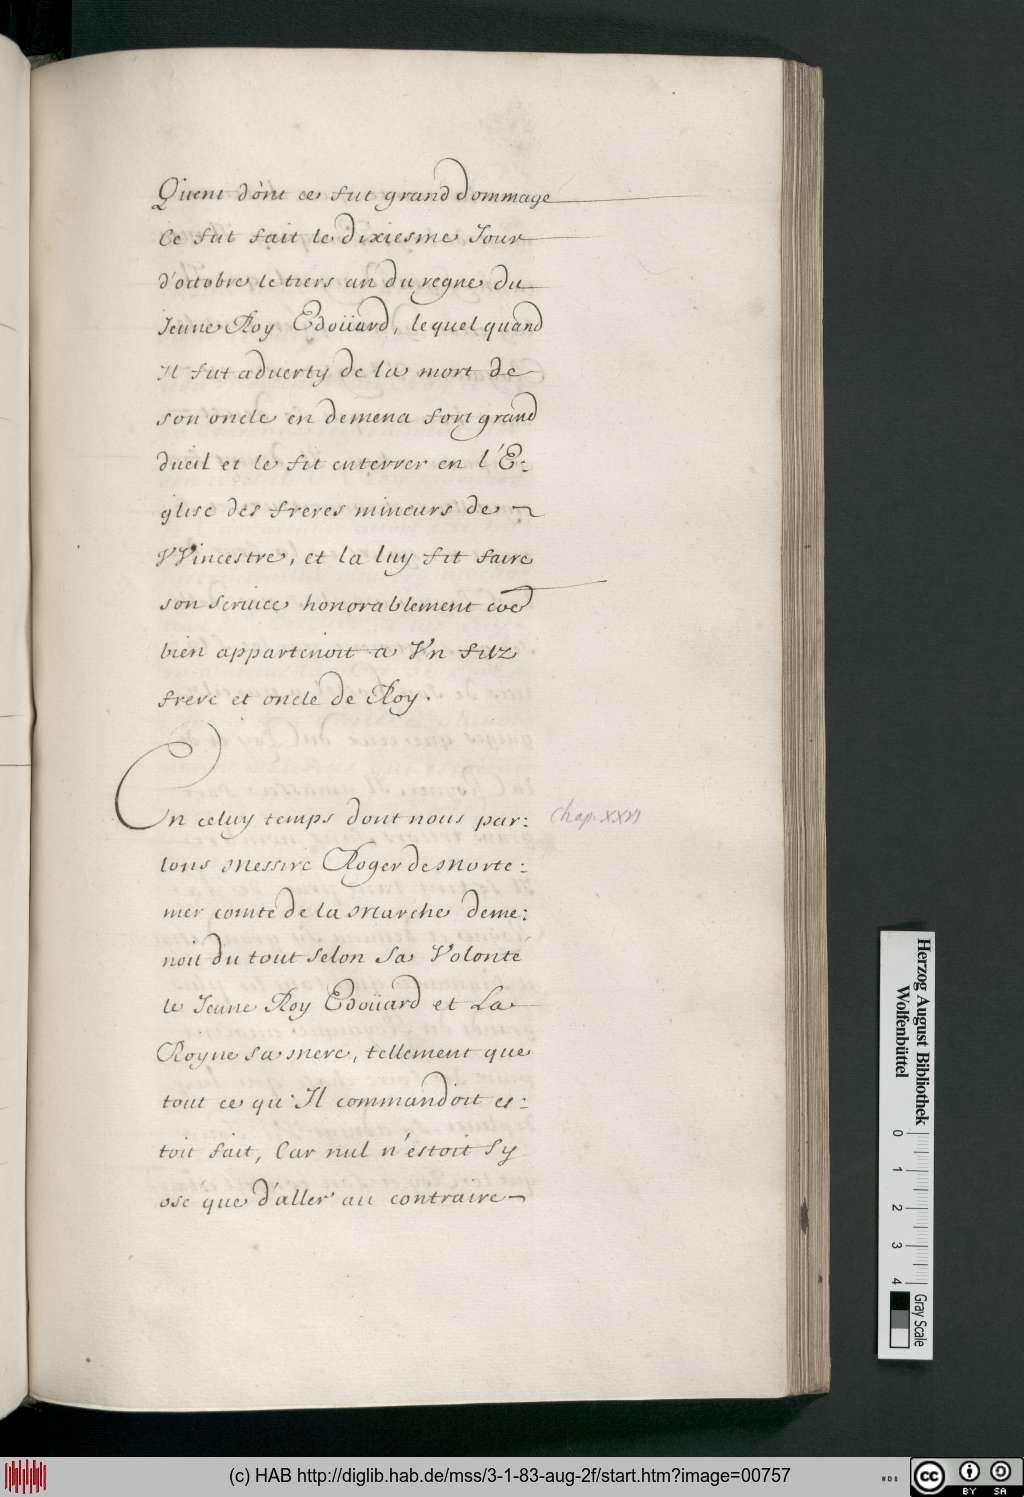 Quent dont ce fut grand dommage
Ce fut fait le dixiesme Jour
d'octobre le tiers an du regne du
Jeune Roy Edoüard, lequel quand
Il fut aduerty de la mort de
son oncle en demena fort grand
dueil et le fit enterrer en l'E:
glise des freres mineurs de
VVincestre, et la luy fit faire
son seruice honorablement coe
bien appartenoit a Vn filz
frere et oncle de Roy.
En celuy temps dont nous par:
Chap. XXVI
lons Messire Roger de Morte:
mer comte de la Marche deme:
noit du tout selon sa Volonté
le Jeune Roy Edoüard et La
Royne sa mere, tellement que
tout ce qu'Il commandoit es:
toit fait, Car nul n'estoit sy
ose que d'aller au contraire
Herzog August Bibliothek
Wolfenbüttel
0 1 2 3 4
Gray Scale
(c) HAB http://diglib.hab.de/mss/3-1-83-aug-2f/start.htm?image=00757
WDB
cc BY SA